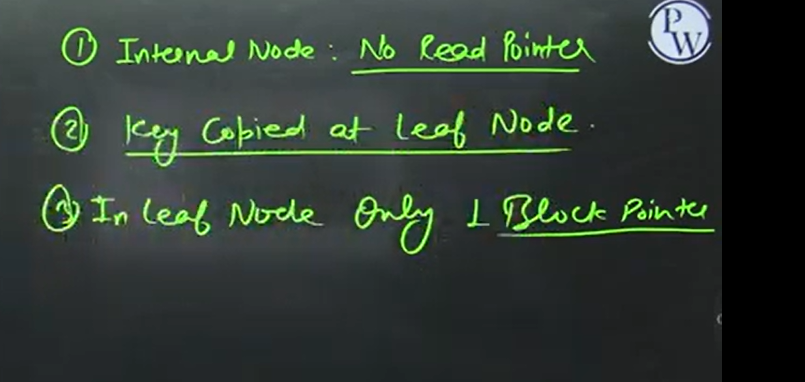 ① Internal Node : No Read Pointer
PW
② Key Copied at Leaf Node.
③ In Leaf Node Only 1 Block Pointer